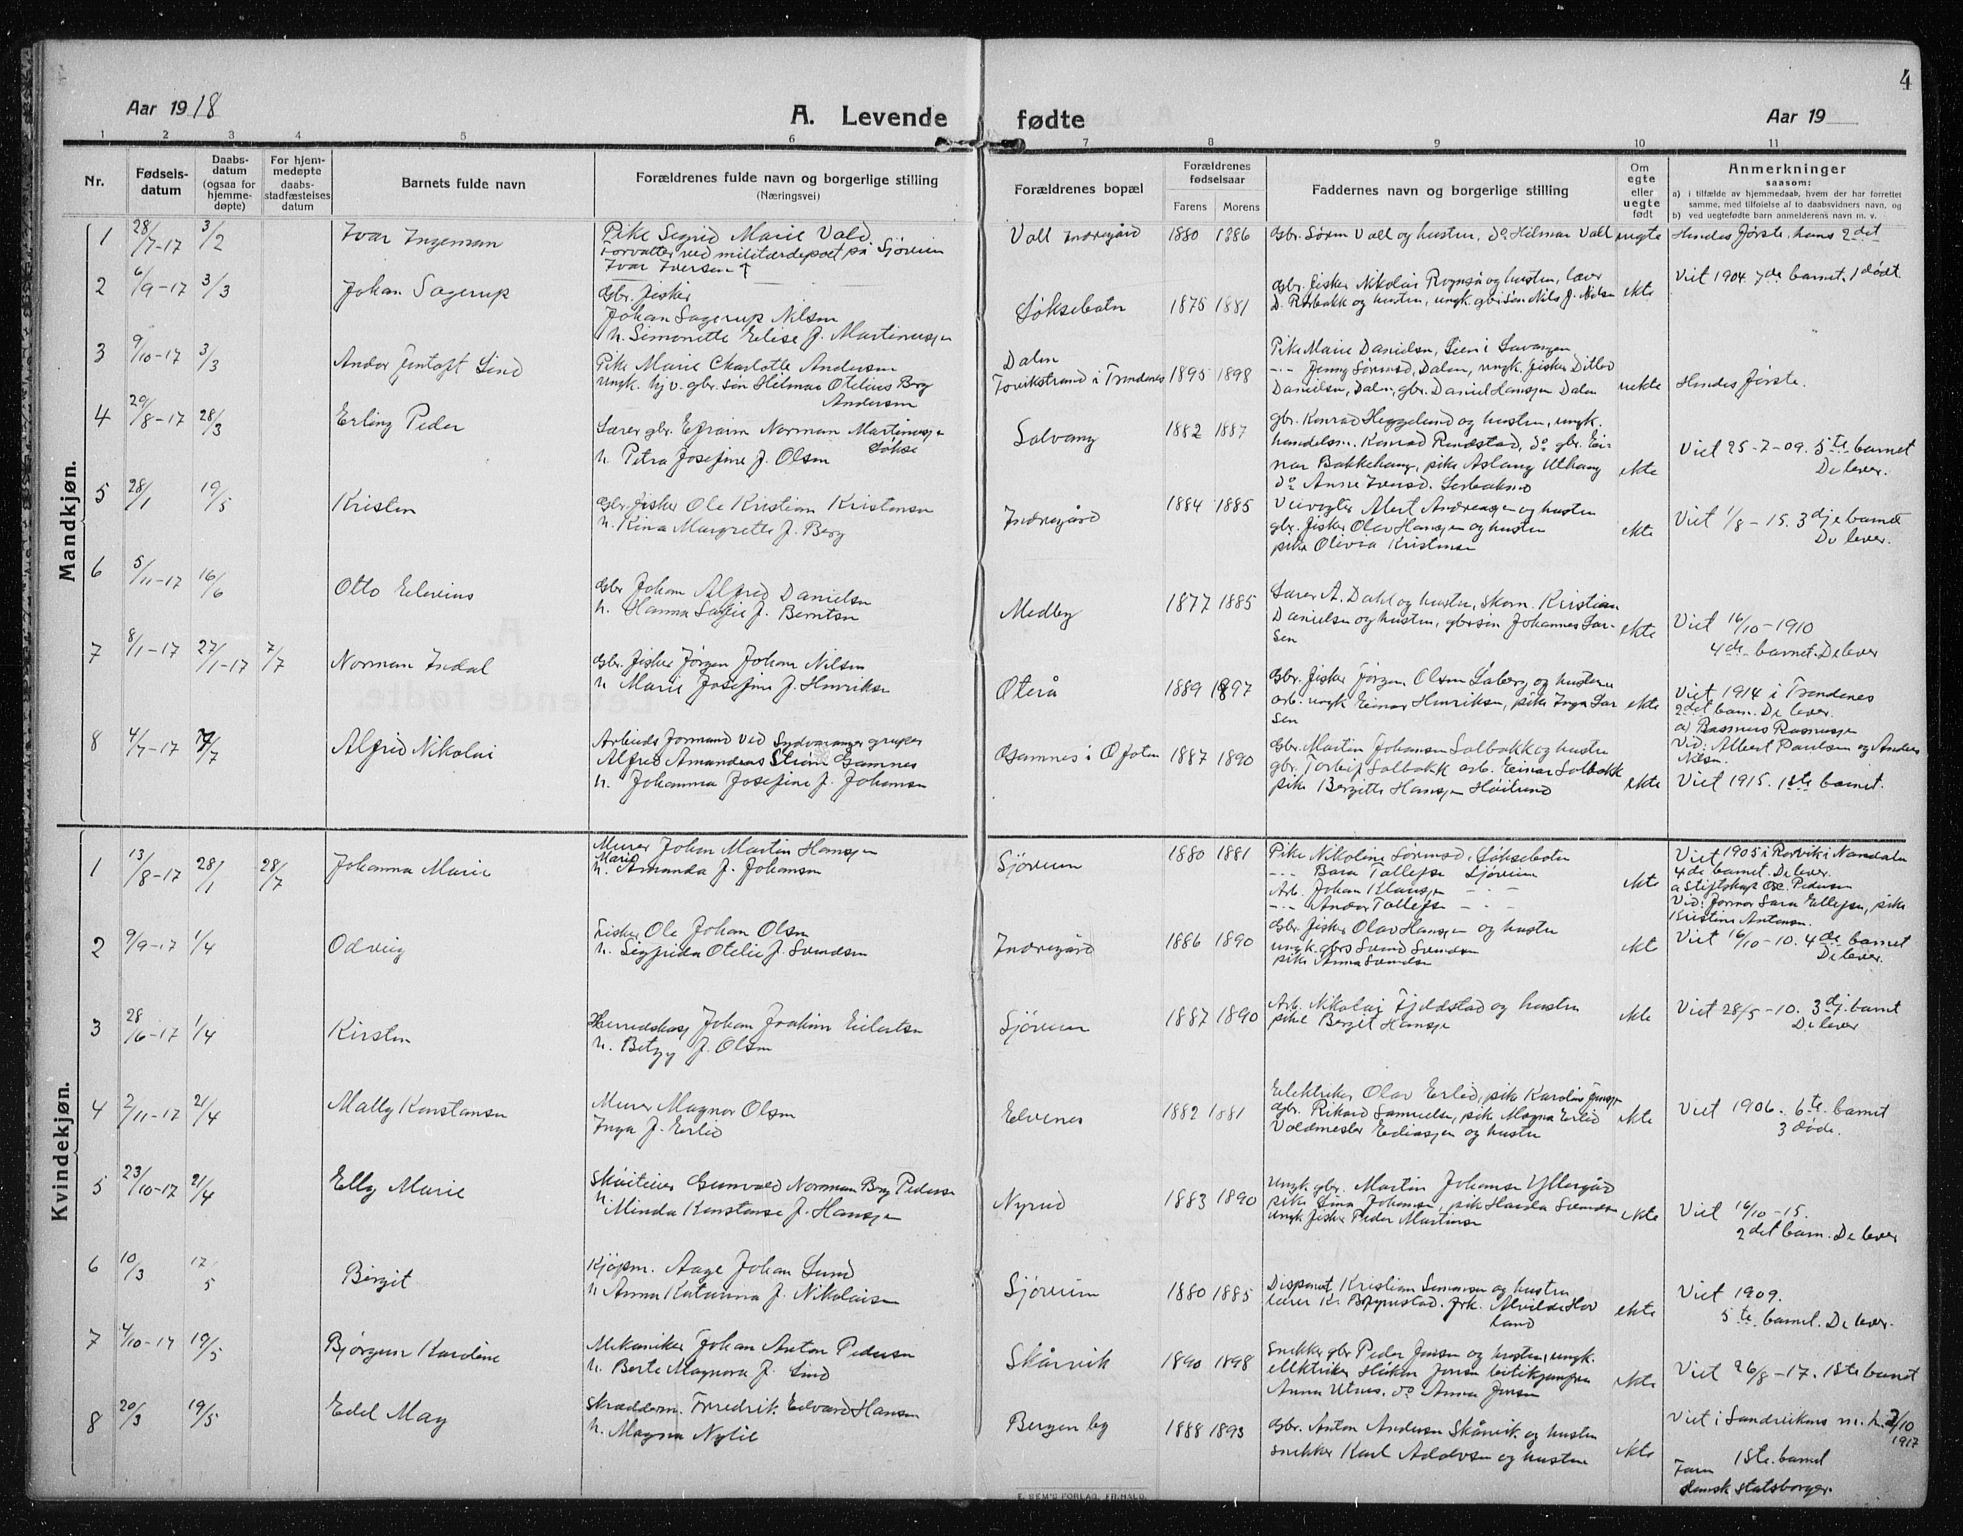 4
Aar 1918
A. Levende fødte
Aar 19
1 2 3 4 5 6 7 8 9 10 11
Nr.
Fødsels-
datum
Daabs-
datum
(ogsaa for
hjemme-
døpte)
For hjem-
medøpte
daabs-
stadfæstelses
datum
Barnets fulde navn
Forældrenes fulde navn og borgerlige stilling
(Næringsvei)
Forældrenes bopæl
Forældrenes
fødselsaar
Farens Morens
Faddernes navn og borgerlige stilling
Om
egte
eller
uegte
født
Anmerkninger
saasom:
a) i tilfælde av hjemmedaab, hvem der har forrettet
samme, med tilføielse af to daabsvidners navn, og
b) ved uegtefødte barn anmelderens navn m. v.
Mandkjøn.
1 28/7-17 3/2 Ivar Ingeman
Pike Sigrid Marie Vold
Forvalter ved militærdepoet på Sjøveien
Ivar Iversen
Voll Indregård 1880 1886
Gbr. Sørin Voll og hustru, do Hilmar Voll
uegte
Hendes første, hans 2det
2 6/9-17 3/3 Johan Sagerup
Gbr. fisker
Johan Sagerup Nilsen
h. Simonette Elise f. Martinussen
Løksebotn 1875 1881
Gbr. fisker Nikolai Rognså og hustru, lærer
D. Rørbakk og hustru, ungk. gbr søn Nils J. Nilsen
ekte
Viet 1904 7de barnet. 1 dødt.
3 9/10-17 3/3 Andor Jentoft Lind
Pike Marie Charlotte Andersen
ungk. hjv. gbr. søn Hilmar Otelius Berg
Andersen
Dalen
Torvikstrand i Trondenes 1895 1898
Pike Marie Danielsen, Lien i Lavangen
-"- Jenny Sørensd, Dalen, ungk. fisker Ditlev
Danielsen, Dalen, gbr. Daniel Hanssen Dalen
uekte
Hendes første.
4 29/8-17 28/3 Erling Peder
Lærer gbr. Efraim Norman Martinussen
Løkse
h. Petra Josefine f. Olsen
Solvang 1882 1887
gbr. Konrad Heggelund og hustru, ungk.
handelsm. Konrad Rundstad, do gbr. Ei-
nar Bakkehaug, pike Aslaug Uthaug
do Anne Iversd.
ekte
Viet 25-7-09. 5te barnet
De lever.
5 28/1 19/5 Kristen
Gbr. fisker Ole Kristian Kristensen
h. Rina Margrette f. Berg
Indregård 1884 1885
Veivogter Albert Andreassen og hustru
gbr. fisker Olav Hanssen og hustru
pike Olivia Kristensen
ekte
Viet 1/8-15. 3dje barnet
De lever.
6 5/11-17 16/6 Otto Elevius
Gbr Johan Alfred Danielsen
h. Hanna Sofie f. Berntsen
Medby 1877 1885
Lærer A. Dahl og hustru, skom. Kristian
Danielsen og hustru, gbr søn Johannes Lar-
sen
ekte
Viet 16/10-1910
4de barnet. De lever
7 8/1-17 27/1-17 7/7 Norman Indal
Gbr. fisker Jørgen Johan Nilsen
h. Marie Josefine f. Henriksen
Oterå 1889 1897
Gbr. fisker Jørgen Olsen Låberg og hustru
arb. ungk Einar Henriksen, pike Inga Lar-
sen
ekte
Viet 1914 i Trondenes
2det barn. De lever.
a) Rasmus Rasmussen
Vid: Albert Paulsen og Anders
Nilsen.
8 4/7-17 7/7 Alfred Nikolai
Arbeids formand ved Sydvaranger gruber
Alfred Amandus Strøm Gamnes
h. Johanna Josefine f. Johansen
Gamnes i Ofoten 1887 1890
Gbr. Martin Johansen Solbakk og hustru
gbr. Torleif Solbakk arb. Einar Solbakk
pike Bergitte Hansen Høilund
ekte
Viet 1915. 1ste barnet.
Kvindekjøn.
1 13/8-17 28/1 28/7 Johanna Marie
Murer Johan Martin Hansen
Marie
h. Amanda f. Johansen
Sjøveien 1880 1881
Pike Nikoline Sørensd. Løksebotn
-"- Bara Tollefsen Sjøveien
Arb. Johan Klaussen -"-
-"- Andor Tollefsen -"-
ekte
Viet 1905 i Rørvik i Namdalen
4de barnet. De lever.
a Stiftskap Ole Pedersen
Vid: Jormor Sara Ellefsen, pike
Kristine Antonsen.
2 9/9-17 1/4 Odveig
Fisker Ole Johan Olsen
h. Sigfrida Otelie f. Svendsen
Indregård 1886 1890
Gbr. fisker Olav Hanssen og hustru
ungk. gbrs Svend Svendsen
pike Anna Svendsen
ekte
Viet 16/10-10. 4de barnet
De lever.
3 28/6-17 1/4 Kirsten
Herredskas. Johan Joakim Eilertsen
h. Betzy f. Olsen
Sjøveien 1887 1890
Arb. Nikolai Fjeldstad og hustru
pike Bergit Hanssen
ekte
Viet 28/5-10. 3dj. barnet
De lever
4 2/11-17 21/4 Mally Konstanse
Murer Magnor Olsen
Inga f. Erlid
Elvenes 1882 1881
Elektriker Olav Erlid, pike Karoline Jenssen
Gbr. Rikard Samuelsen, pike Magna Erlid
Voldmester Ediassen og hustru
ekte
Viet 1906. 6te. barnet
3 døde.
5 23/10-17 21/4 Elly Marie
Gunvald Norman Berg Pedersen
h. Minda Konstanse f. Hanssen
Nyrud 1883 1890
Ungk. gbr. Martin Johansen Yttergård
pike Lina Johansen, pike Harda Svendsen
ungk fisker Peder Martinsen
ekte
Viet 16/10-15.
2det barn. De lever
6 10/3 17/5 Bergit
Kjøpm. Aage Johan Lund
h. Anna Katarina f. Nikolaisen
Sjøveien 1880 1885
Disponent Kristian Simonsen og hustru
lærer Kr. Bøgnestad. frk. Alvilde Hov
land
ekte
Viet 1909.
5te. barnet. De lever.
7 4/10-17 19/5 Bjørgun Karoline
Mekaniker Johan Anton Pedersen
h. Berte Magnora f. Lind
Skårvik 1890 1898
snekker gbr Peder Jensen og hustru, ungk.
elektriker Håkon Jensen butikjomfru
Anna Utnes. do Anna Jensen
ekte
Viet 26/8-17. 1ste barnet
8 20/3 19/5 Edel May
Skræderm. Fredrik Edvard Hansen
h. Magna Nylie
Bergen by 1888 1893
Gbr. Anton Andersen Skårvik og hustru
snekker Karl Adolvsen og hustru
ekte
Viet i Sandvikens m.h. 2/10
1917
1ste. barnet
Faren
dansk statsborger.
E. SEM'S FORLAG, FR.HALD.